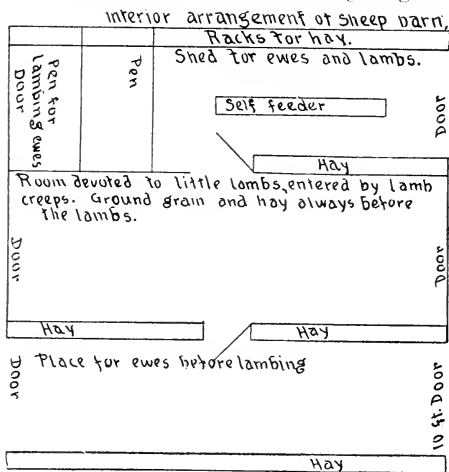 Interior arrangement of sheep barn.
Racks for hay.
Shed for ewes and lambs.
Pen for
lambing ewes
Door
Pen
Self feeder
Door
Hay
Room devoted to little lambs, entered by lamb
creeps. Ground grain and hay always before
the lambs.
Door
Door
Hay
Hay
Place for ewes before lambing
Door
10 ft. Door
Hay